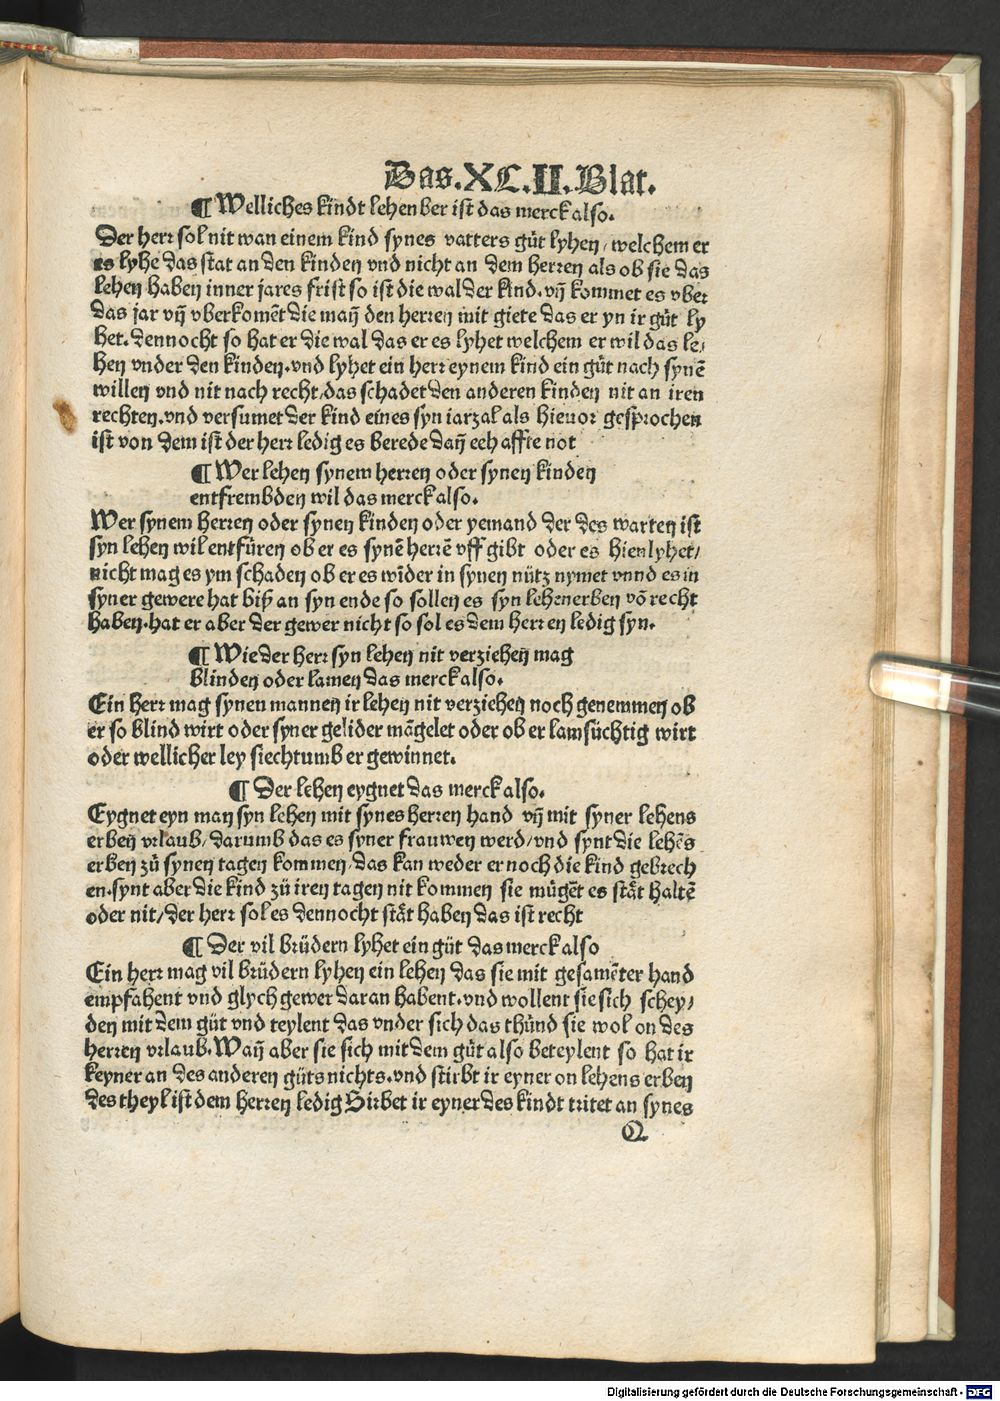 Das.XLII.Blat.
¶ Welliches kindt lehenber ist das merck also.
Der herr sol nit wan einem kind synes vatters gůt lyhen/ welchem er
es lyhe das stat an den kinden vnd nicht an dem herren als ob sie das
lehen haben inner jares frist so ist die wal der kind.vñ kommet es vber
das jar vñ vberkomēt die man den herren mit giete das er yn ir gůt ly
het.dennocht so hat er die wal das er es lyhet welchem er wil das le/
hen vnder den kinden.vnd lyhet ein herr eynem kind ein gůt nach synē
willen vnd nit nach recht/das schadet den anderen kinden nit an iren
rechten.vnd versumet der kind eines syn iarzal als hieuor gesprochen
ist von dem ist der herr ledig es berede dañ eehaffte not
¶ Wer lehen synem herren oder synen kinden
entfrembden wil das merck also.
Wer synem herren oder synen kinden oder yemand der des warten ist
syn lehen wil entfüren ob er es synē herrē vff gibt oder es hien lyhet/
nicht mag es ym schaden ob er es wīder in synen nütz nymet vnnd es in
syner gewere hat biß an syn ende so sollen es syn lehenerben vō recht
haben.hat er aber der gewer nicht so sol es dem herren ledig syn.
¶ Wie der herr syn lehen nit verziehen mag
blinden oder lamen das merck also.
Ein herr mag synen mannen ir lehen nit verziehen noch genemmen ob
er so blind wirt oder syner gelider māgelet oder ob er lamsüchtig wirt
oder wellicher ley siechtumb er gewinnet.
¶ Der lehen eygnet das merck also.
Eygnet eyn man syn lehen mit synes herren hand vñ mit syner lehens
erben vrlaub/darumb das es syner frauwen werd/vnd synt die lehēs
erben zů synen tagen kommen/das kan weder er noch die kind gebrech
en.synt aber die kind zů iren tagen nit kommen sie mügēt es stät haltē
oder nit/der herr sol es dennocht stät haben das ist recht
¶ Der vil brüdern lyhet ein gůt das merck also
Ein herr mag vil brüdern lyhen ein lehen das sie mit gesamēter hand
empfahent vnd glych gewer daran habent.vnd wollent sie sich schey/
den mit dem gůt vnd teylent das vnder sich das thůnd sie wol on des
herren vrlaub.Wañ aber sie sich mit dem gůt also beteylent so hat ir
keyner an des anderen gůts nichts.vnd stirbt ir eyner on lehens erben
des theyl ist dem herren ledig Sirbet ir eyner des kindt tritet an synes
Q
Digitalisierung gefördert durch die Deutsche Forschungsgemeinschaft - DFG